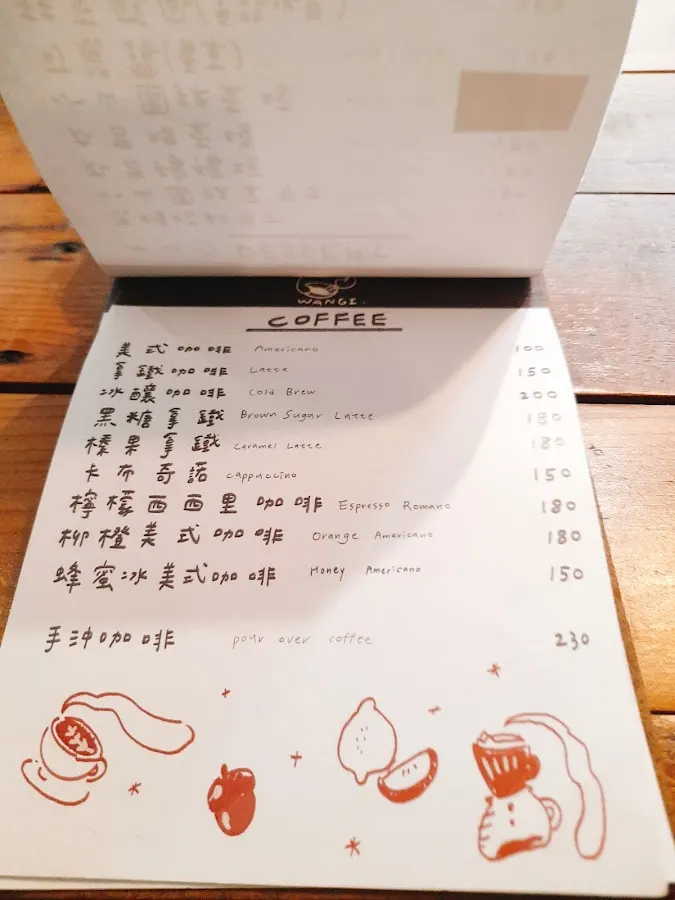 WANGI.
COFFEE
美式咖啡 Americano 100
拿鐵咖啡 Latte 150
冰釀咖啡 Cold Brew 200
黑糖拿鐵 Brown Sugar Latte 180
榛果拿鐵 Caramel Latte 180
卡布奇諾 cappuccino 150
檸檬西西里咖啡 Espresso Romano 180
柳橙美式咖啡 Orange Americano 180
蜂蜜冰美式咖啡 Honey Americano 150
手沖咖啡 pour over coffee 230